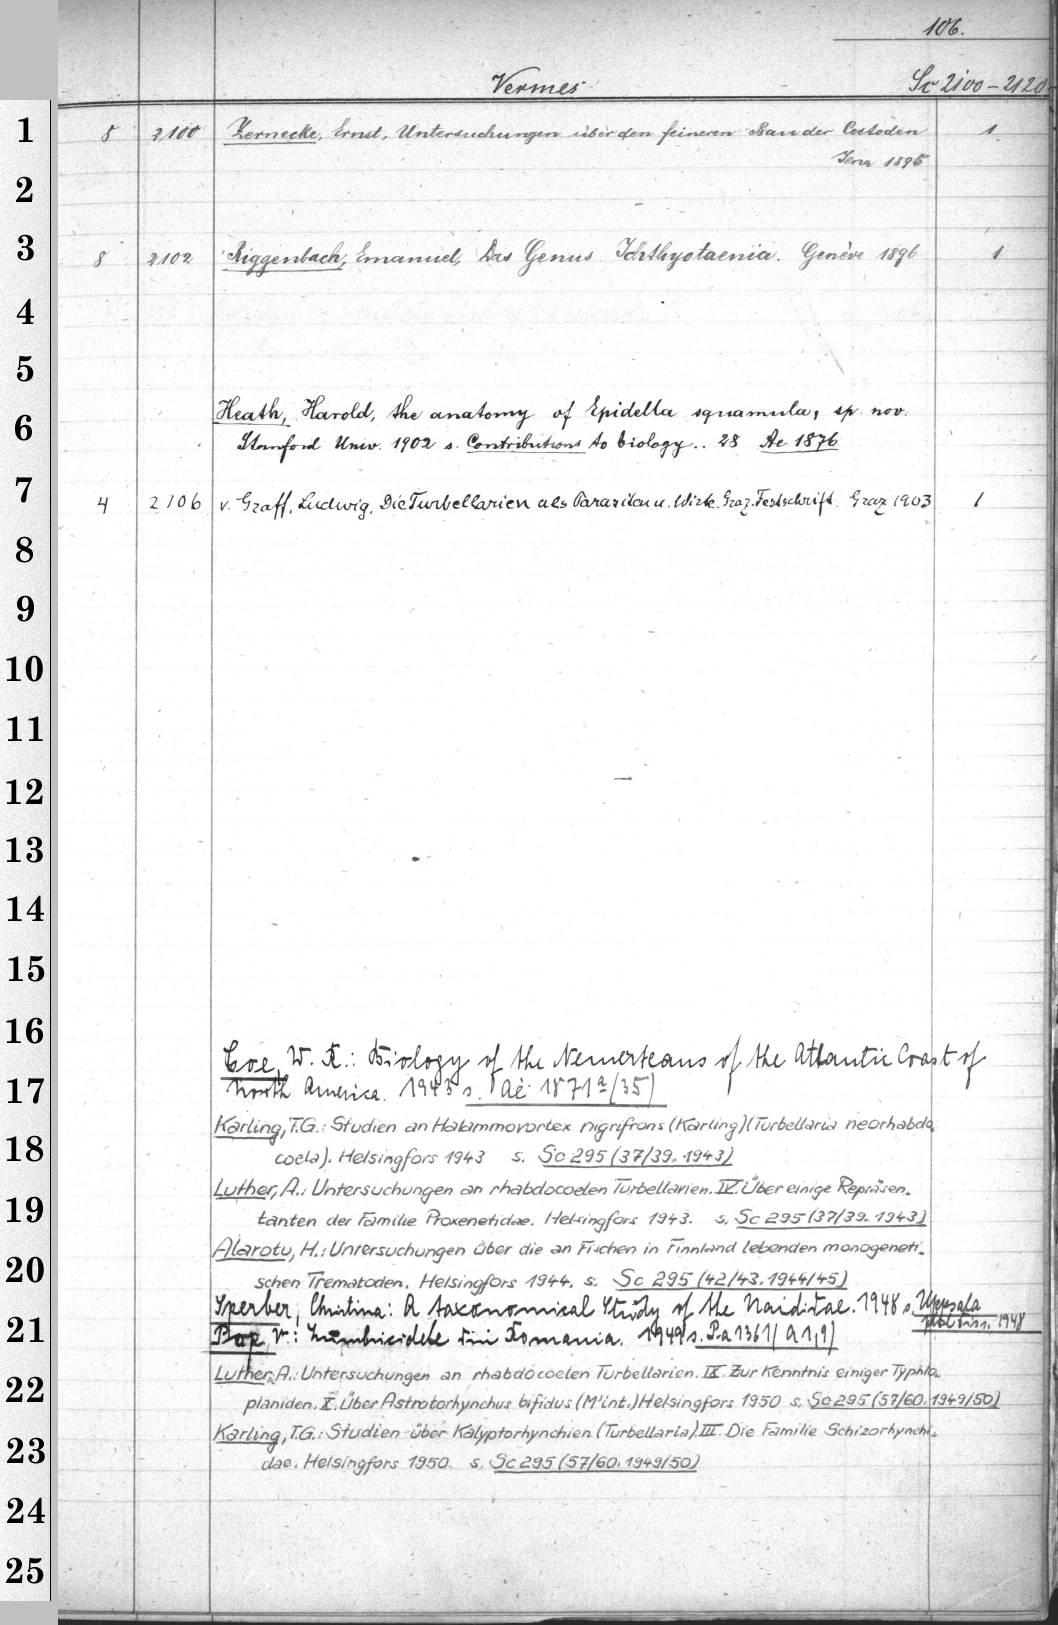 106.
Vermes Sc 2100-2120
1 8 2100 Zernecke, Ernst, Untersuchungen über den feineren Bau der Cestoden 1
Jena 1895
2
3 8 2102 Riggenbach, Emanuel, Das Genus Ichthyotaenia. Genève 1896 1
4
5
Heath, Harold, the anatomy of Epidella squamula, sp. nov.
6 Stanford Univ. 1902 s. Contributions to biology.. 28 Ae 1876
7 4 2106 v. Graff, Ludwig, Die Turbellarien als Parasiten u. Wirte. Graz. Festschrift. Graz 1903 1
8
9
10
11
12
13
14
15
16
Coe, W. R.: Biology of the Nemerteans of the Atlantic Coast of
17 North America. 1943 s. Ae 1871a/(35)
Karling, T.G.: Studien an Halammovortex nigrifrons (Karling) (Turbellaria neorhabdo,
18 coela). Helsingfors 1943 s. Sc 295 (37/39.1943)
Luther, A.: Untersuchungen an rhabdocoelen Turbellarien. IV. Über einige Repräsen-
19 tanten der Familie Proxenetidae. Helsingfors 1943. s. Sc 295 (37/39.1943)
Alarotu, H.: Untersuchungen über die an Fischen in Finnland lebenden monogeneti-
20 schen Trematoden. Helsingfors 1944. s. Sc 295 (42/43.1944/45)
Sperber, Christina: A taxonomical Study of the Naididae. 1948 s. Uppsala
phil diss. 1948
21 Pop, V.: Lumbricidele din Romania. 1949 s. Pa 1361/(A1,9)
Luther, A.: Untersuchungen an rhabdocoelen Turbellarien. IX. Zur Kenntnis einiger Typhlo-
22 planiden. X. Über Astrotorhynchus bifidus (M'int.) Helsingfors 1950 s. Sc 295 (57/60.1949/50)
Karling, T.G.: Studien über Kalyptorhynchien (Turbellaria). III. Die Familie Schizorhynchi-
23 dae. Helsingfors 1950. s. Sc 295 (57/60.1949/50)
24
25